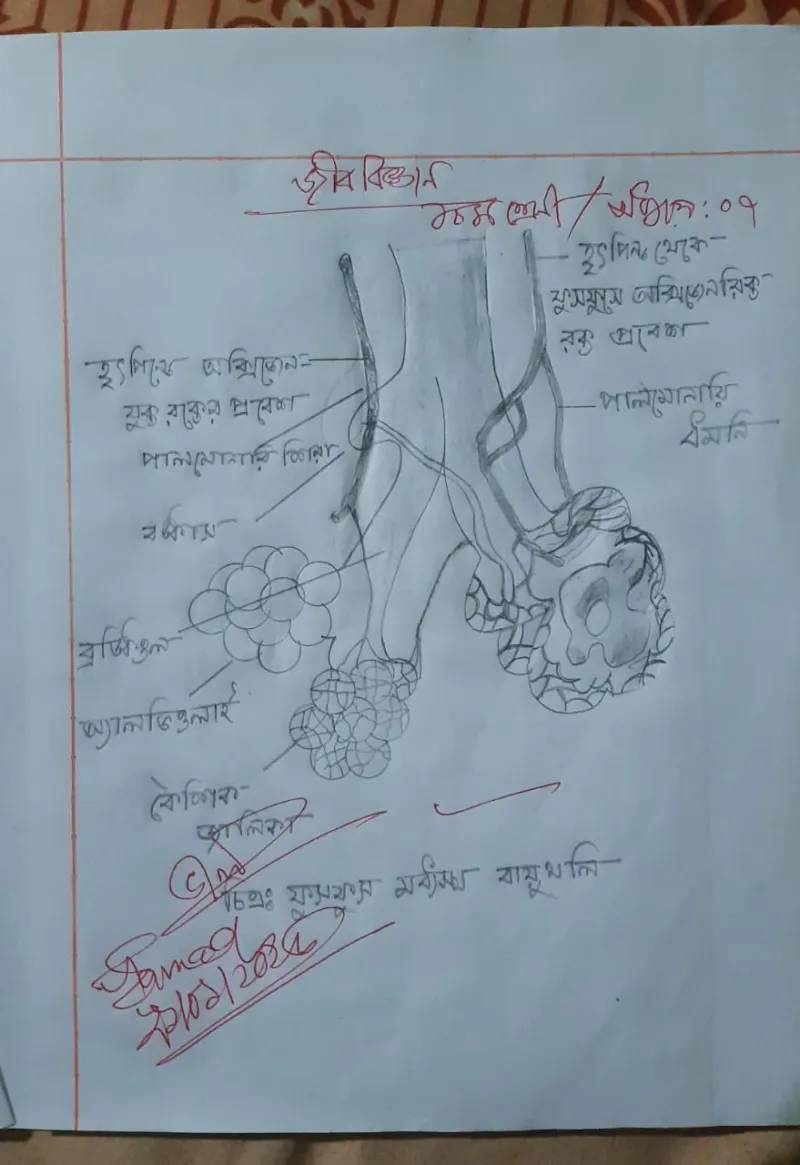 জীব বিজ্ঞান
শ্রেণী / অধ্যায়: ০৭
হৃৎপিন্ড থেকে
ফুসফুসে অক্সিজেনরিক্ত
রক্ত প্রবেশ
হৃৎপিন্ডে অক্সিজেন-
যুক্ত রক্তের প্রবেশ
পালমোনারি শিরা
পালমোনারি
ধমনি
ব্রঙ্কাস
ব্রঙ্কিওল
অ্যালভিওলাই
কৈশিক
জালিকা
চিত্র: ফুসফুস মধ্যস্থ বায়ুথলি